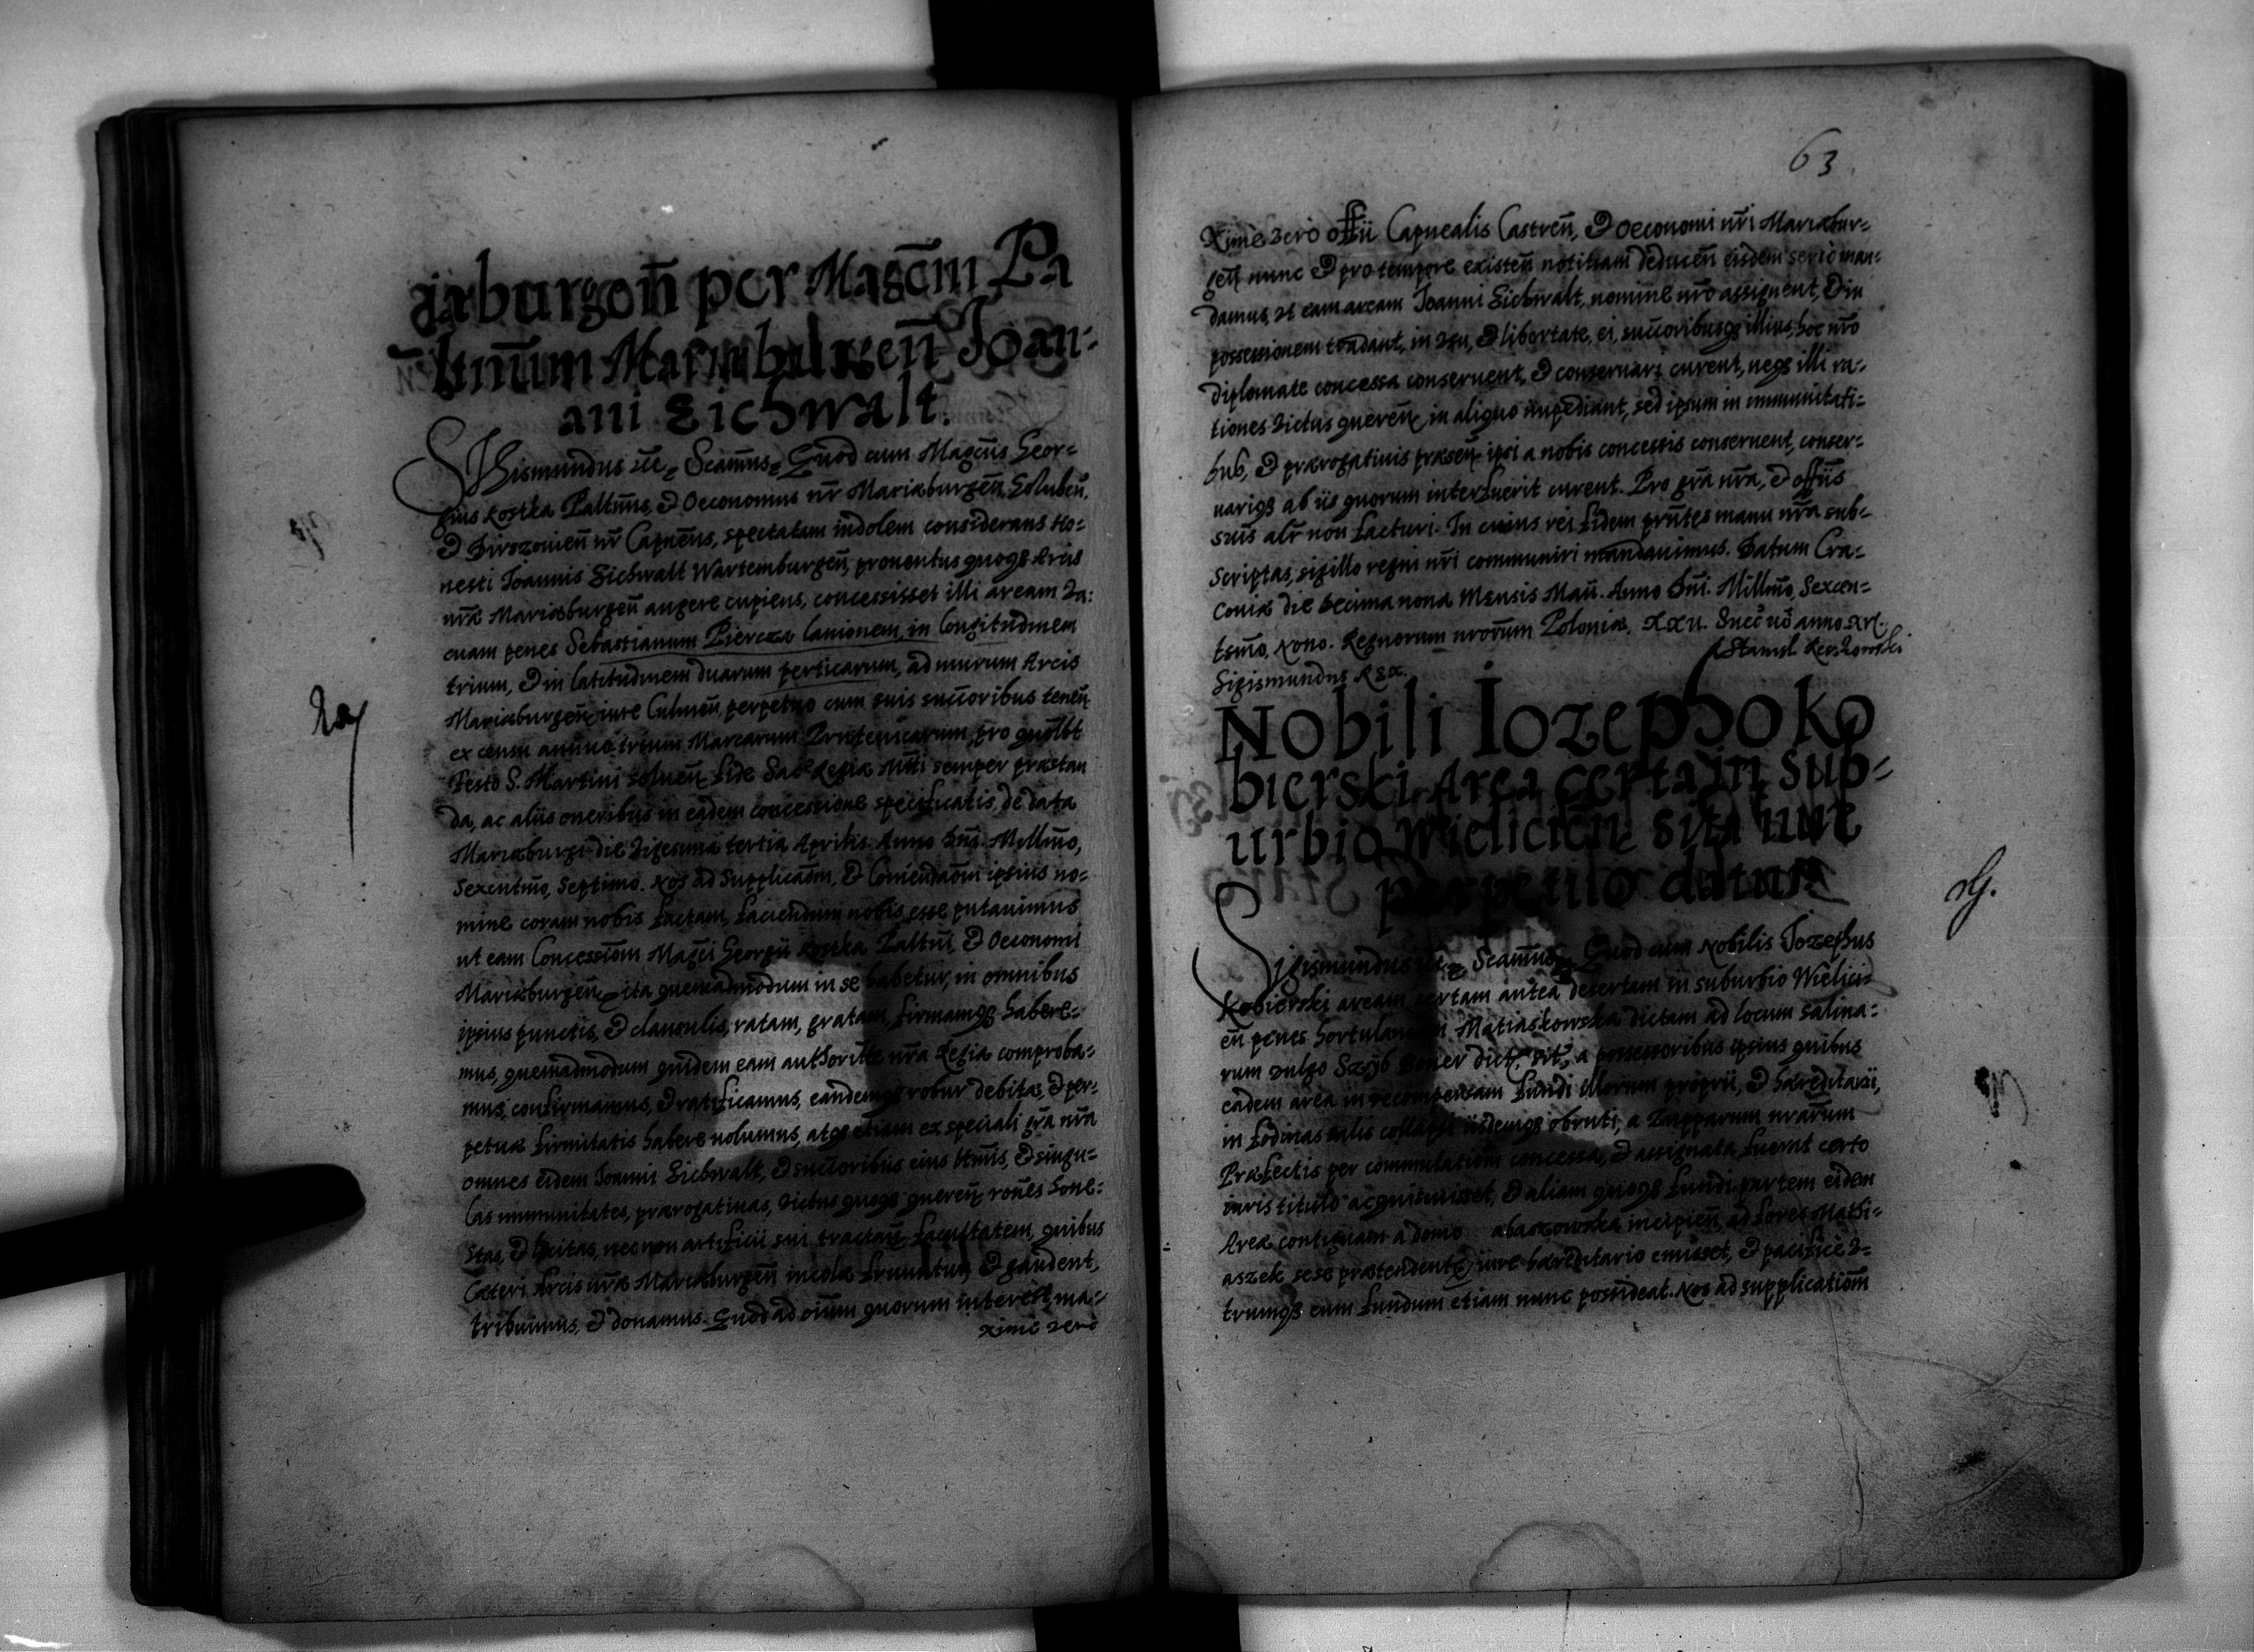 iaburgeñ per Magcm̃ Pa
ltinũm Mariæburgeñ Joan-
ani Eichwalt.
Sigismundus etc. Scam̃us. Quod cum Magcũs Geor-
gius Kostka Paltnũs, & Oeconomus nr̃ Mariæburgeñ, Golubeñ,
& nr̃ Capneũs, spectatam indolem considerans Ho-
nesti Joannis Eichwalt Wartemburgeñ, prouentus quoqꝫ Arcis
nr̃æ Mariæburgeñ augere cupiens, concessisset illi aream va-
cuam penes Sebastianum Piercza lanionem, in longitudinem
trium, & in latitudinem duarum perticarum, ad murum Arcis
Mariæburgeñ iure Culmeñ perpetuo cum suis succoribus teneñ
ex censu annuo trium Marcarum Prutenicarum, pro quolbt
Festo S. Martini solueñ, fide Sac. Regiæ Mtti semper præstan
da, ac aliis oneribus in eadem concessione specificatis, de data
Mariæburgi die vigesima tertia Aprilis. Anno Dni. Millmo,
Sexcentmo, Septimo. Nos ad Supplicaõm, & Comendaõm ipsius no-
mine coram nobis factam, faciendum nobis esse putauimus
ut eam Concessiom̃ Magci Georgii Kostka Paltni, & Oeconomi
Mariæburgeñ, ita quemadmodum in se habetur, in omnibus
ipsius punctis, & clausulis, ratam, gratam, firmamqꝫ habere-
mus, quemadmodum quidem eam authoritte nr̃a Regia comproba-
mus, confirmamus, & ratificamus, eandemqꝫ robur debitæ, & per-
petuæ firmitatis habere uolumus, atqꝫ etiam ex speciali gr̃a nr̃a
omnes eidem Joanni Eichwalt, & succoribus eius ltimis, & singu-
las immunitates, prærogatiuas, victus quoqꝫ quereñ, rones hone-
stas, & licitas, necnon artificii sui tractañ facultatem, quibus
Cæteri Arcis nr̃æ Mariæburgeñ incolæ fruuntur, & gaudent,
tribuimus, & donamus. Quod ad oium̃ quorum interest, ma-
xime vero
63
Xime vero offii Capnealis Castreñ, & Oeconomi nr̃i Mariæbur-
geñ nunc & pro tempore existeñ notitiam deduceñ eisdem serio man-
damus, ut eam aream Joanni Eichwalt, nomine nr̃o assignent, & in
possessionem tradant, in usu, & libertate, ei, succoribusqꝫ illius, hoc nr̃o
diplomate concessa conseruent, & conseruari curent, neqꝫ illi ra-
tiones victus quereñ, in aliquo impediant, sed ipsum in immunitati-
bus, & prærogatiuis præseñ ipsi a nobis concessis conseruent, conser-
uariqꝫ ab iis quorum interfuerit curent. Pro gr̃a nr̃a, & offiis
suis alr̃ non facturi. In cuius rei fidem pr̃ntes manu nr̃a sub-
scriptas, sigillo regni nr̃i communiri mandauimus. Datum Cra-
couiæ die decima nona Mensis Maii. Anno Dni. Millmo, Sexcen-
tsmo, Nono. Regnorum nrorum Poloniæ. XXII. Suec. uo anno XVI.
Sigismundus Rex.
Nobili Iozepho Ko
bierski Area certa in sub-
urbio Wielicieñ sita iure
perpetuo datur
Sigismundus etc. Scam̃us. Quod cum Nobilis Jozephus
Kobierski aream certam antea desertam in suburbio Wielici-
eñ penes hortulanam Matiaskowska dictam ad locum salina-
rum vulgo Szyb Boner dict. sit, a possessoribus ipsius quibus
eadem area in recompensam fundi illorum proprii, & hæreditarii,
in fodinas salis collapsi iisdemqꝫ obruti, a Zupparum nrarum
Præfectis per commutatiom̃ concessa, & assignata fuerat certo
iuris titulo acquisiuisset, & aliam quoqꝫ fundi partem eidem
Areæ contiguam a domo abaszowska incipieñ, ad fores Mathi-
aszek sese prætendentẽ, iure hæreditario emisset, & pacifice u-
trumqꝫ eum fundum etiam nunc possideat. Nos ad supplicatiom̃